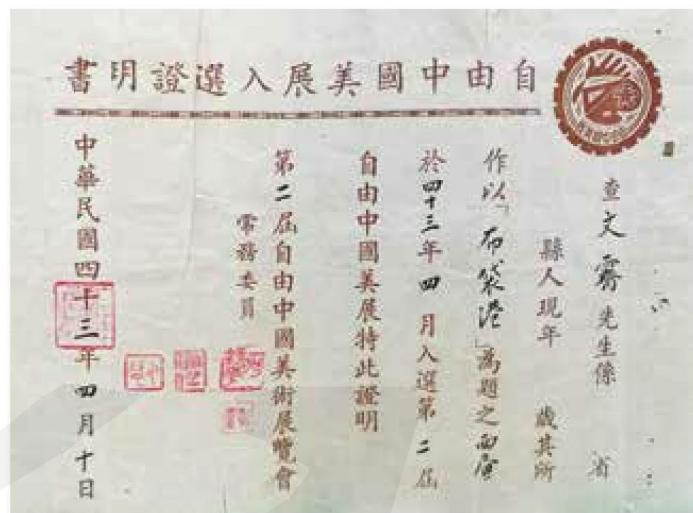 自由中國美展入選證明書
查文霽先生係　　省
縣人現年　　歲其所
作以「布袋港」為題之西畫
於四十三年四月入選第二屆
自由中國美展特此證明
第二屆自由中國美術展覽會
常務委員
中華民國四十三年四月十日